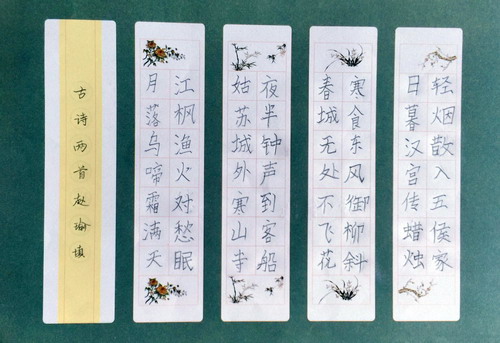 古诗两首赵瑜
月落乌啼霜满天
江枫渔火对愁眠
姑苏城外寒山寺
夜半钟声到客船
春城无处不飞花
寒食东风御柳斜
日暮汉宫传蜡烛
轻烟散入五侯家